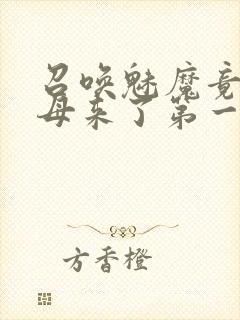 召唤魅魔竟
母来了第一
方香橙